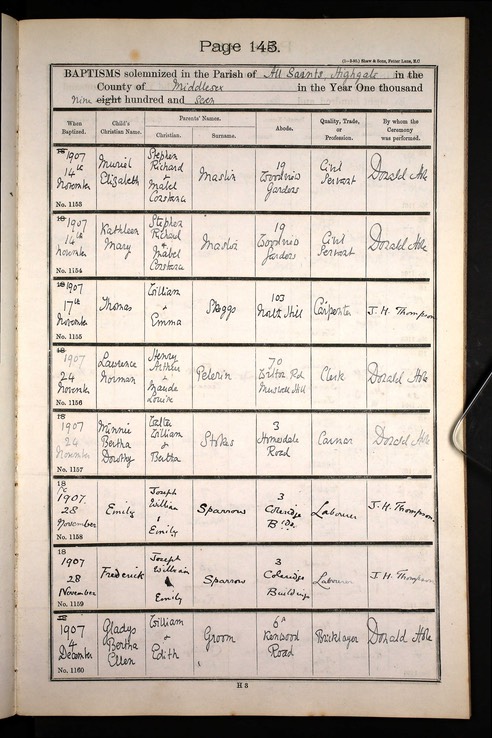 Page 145.
(5—2.90.) Shaw & Sons, Fetter Lane, E.C
BAPTISMS solemnized in the Parish of All Saints, Highgate in the
County of Middlesex in the Year One thousand
nine eight hundred and Seven
When Baptized.
Child's Christian Name.
Parents' Names.
Christian.
Surname.
Abode.
Quality, Trade, or Profession.
By whom the Ceremony was performed.
18 1907
14th
November
No. 1153
Muriel
Elizabeth
Stephen
Richard
+
Mabel
Constance
Maslin
19
Gardens
Civil
Servant
Donald Hole
18 1907
14th
November
No. 1154
Kathleen
Mary
Stephen
Richard
+
Mabel
Constance
Maslin
19
Gardens
Civil
Servant
Donald Hole
18 1907
17th
November
No. 1155
Thomas
William
+
Emma
Skeggs
103
North Hill
Carpenter
J. H. Thompson
18
1907
24
November
No. 1156
Lawrence
Norman
Henry
Arthur
+
Maude
Louise
Pelerin
70
Rd
Muswell Hill
Clerk
Donald Hole
18
1907
24
November
No. 1157
Minnie
Bertha
Dorothy
Walter
William
&
Bertha
Stokes
3
Holmesdale
Road
Carman
Donald Hole
18
1907.
28
November
No. 1158
Emily
Joseph
William
&
Emily
Sparrow
3
Coleridge
Bldgs
Labourer
J. H. Thompson
18
1907
28
November
No. 1159
Frederick
Joseph
William
&
Emily
Sparrow
3
Coleridge
Buildings
Labourer
J. H. Thompson
18
1907
4
December
No. 1160
Gladys
Bertha
Ellen
William
+
Edith
Groom
6A
Kenwood
Road
Bricklayer
Donald Hole
H 3